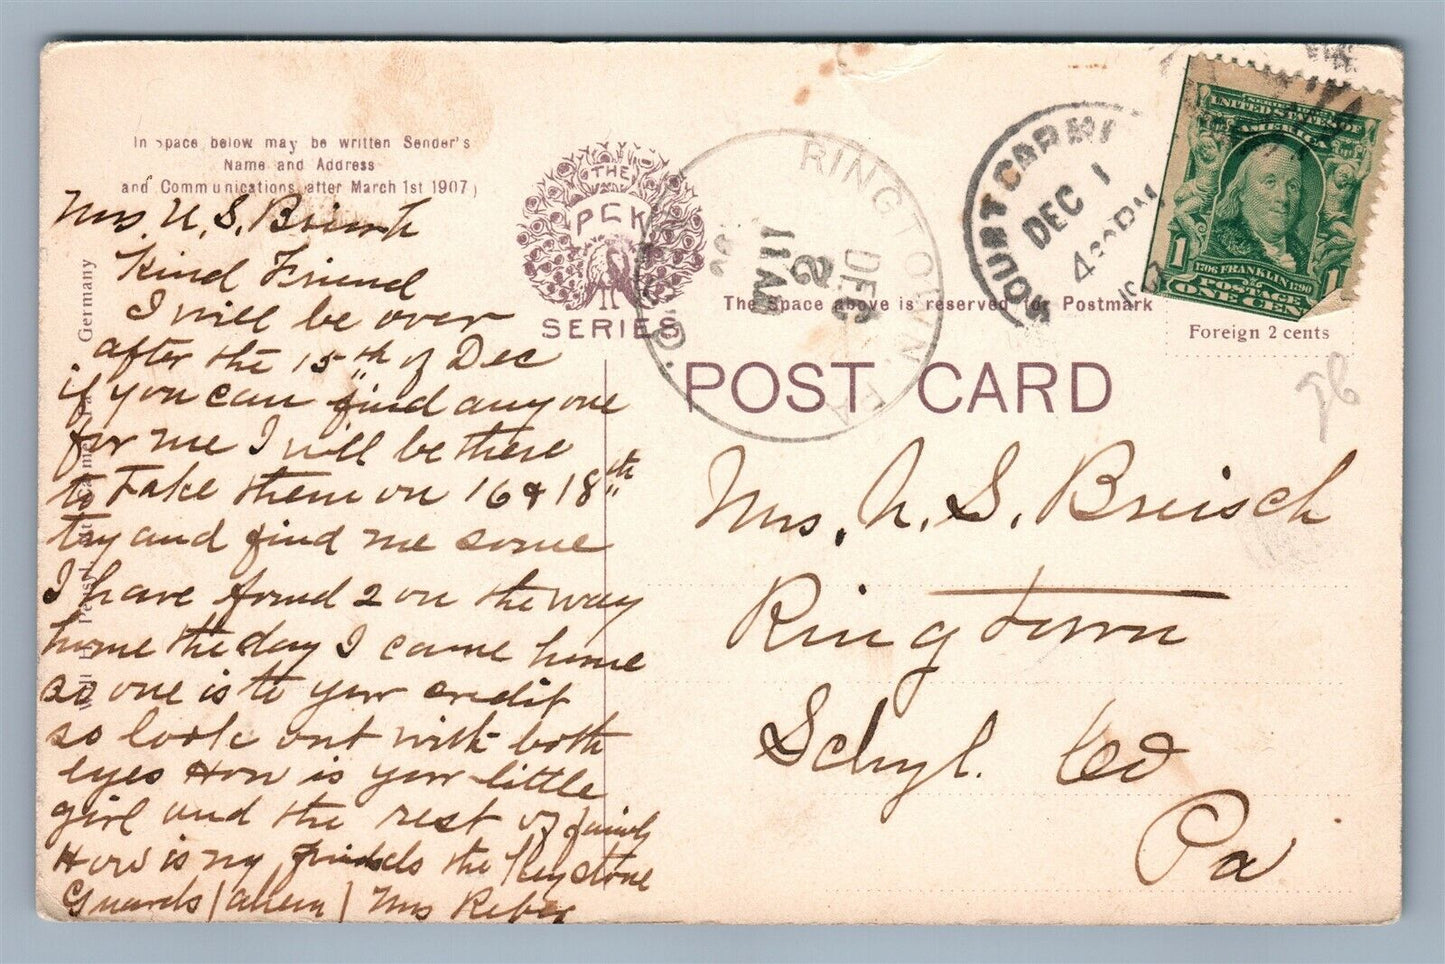 In space below may be written Sender's
Name and Address
and Communications after March 1st 1907)
THE
PCK
SERIES
RINGTOWN, PA
DEC
2
11 AM
MOUNT CARMEL
DEC 1
4 30 PM
SERIES 1902
UNITED STATES OF
AMERICA
1
1706 FRANKLIN 1790
POSTAGE
ONE CENT
The Space above is reserved for Postmark
Foreign 2 cents
POST CARD
96
Germany
Mrs. N. S. Breisch
Kind Friend
I will be over
after the 15th of Dec
if you can find anyone
for me I will be there
to take them on 16 & 18th
try and find me some
I have found 2 on the way
home the day I came home
so one is to your credit
so look out with both
eyes How is your little
girl and the rest of family
How is my friends the Keystone
Guards (ahem) Mrs Reber
Mrs. N. S. Breisch
Ringtown
Schyl. Co
Pa